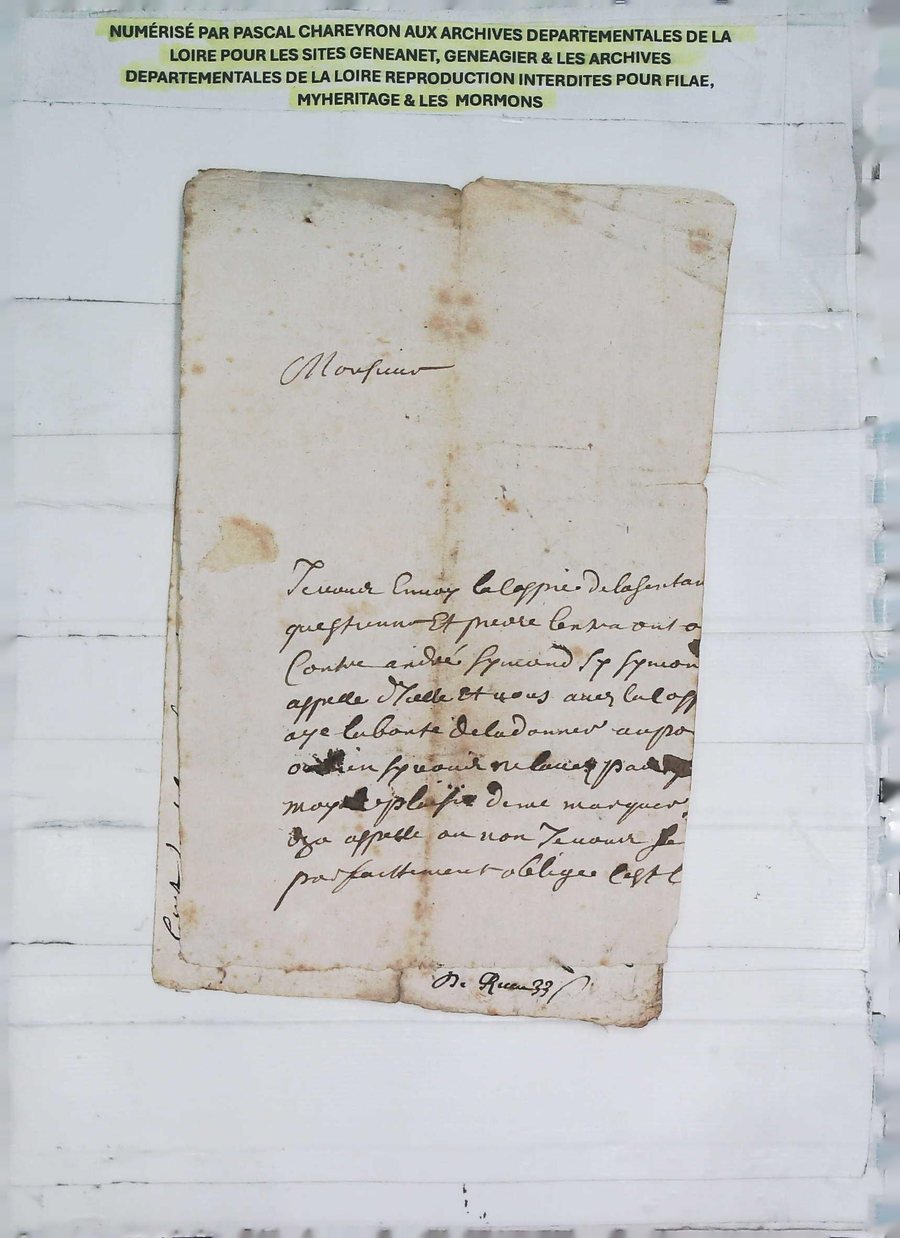 NUMÉRISÉ PAR PASCAL CHAREYRON AUX ARCHIVES DEPARTEMENTALES DE LA
LOIRE POUR LES SITES GENEANET, GENEAGIER & LES ARCHIVES
DEPARTEMENTALES DE LA LOIRE REPRODUCTION INTERDITES POUR FILAE,
MYHERITAGE & LES MORMONS
Monsieur
Je vous envoy la coppie de la sentan
Et pierre ont o
Contre andré Symond Sy Symon
appelle d'Icelle Et vous avez la copp
aye la bonté de la donner au po
moy le plaisir de me marquer
appelle ou non Je vous se
parfaittement obligee C'est l
De